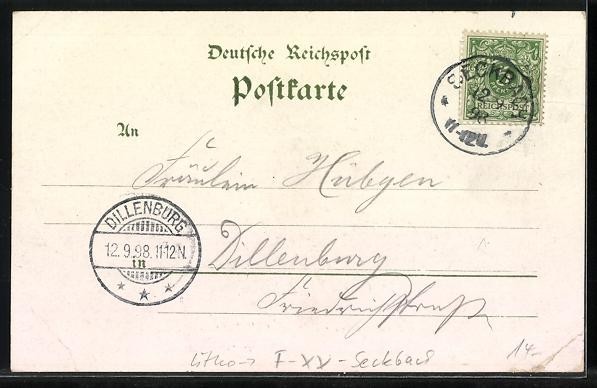 Deutsche Reichspost
Postkarte
SECKBACH
12 9
98
11-12V.
REICHSPOST
An
Fräulein Hübgen
DILLENBURG
12.9.98.11-12N.
in
Dillenburg
Friedrichstraße
Litho → F-XX-Seckbach
14-